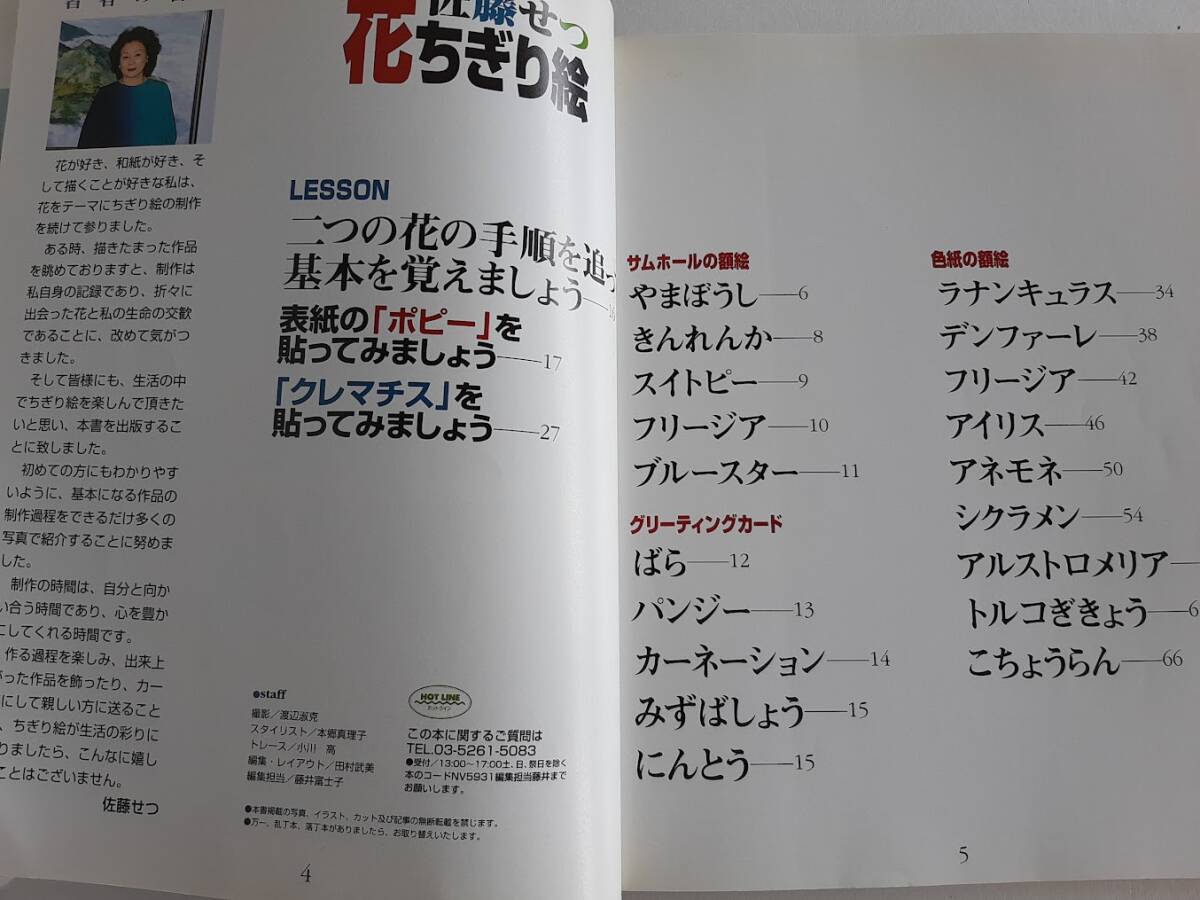 佐藤せつ
花ちぎり絵
花が好き、和紙が好き、そ
して描くことが好きな私は、
花をテーマにちぎり絵の制作
を続けて参りました。
ある時、描きたまった作品
を眺めておりますと、制作は
私自身の記録であり、折々に
出会った花と私の生命の交歓
であることに、改めて気がつ
きました。
そして皆様にも、生活の中
でちぎり絵を楽しんで頂きた
いと思い、本書を出版するこ
とに致しました。
初めての方にもわかりやす
いように、基本になる作品の
制作過程をできるだけ多くの
写真で紹介することに努めま
した。
制作の時間は、自分と向か
い合う時間であり、心を豊か
にしてくれる時間です。
作る過程を楽しみ、出来上
がった作品を飾ったり、カー
にして親しい方に送ること
、ちぎり絵が生活の彩りに
りましたら、こんなに嬉し
ことはございません。
佐藤せつ
LESSON
二つの花の手順を追っ
基本を覚えましょう—16
表紙の「ポピー」を
貼ってみましょう—17
「クレマチス」を
貼ってみましょう—27
●staff
撮影/渡辺淑克
スタイリスト/本郷真理子
トレース/小川 高
編集・レイアウト/田村武美
編集担当/藤井富士子
HOT LINE
ホットライン
この本に関するご質問は
TEL.03-5261-5083
●受付/13:00〜17:00土、日、祭日を除く
本のコードNV5931編集担当藤井まで
お願いします。
●本書掲載の写真、イラスト、カット及び記事の無断転載を禁じます。
●万一、乱丁本、落丁本がありましたら、お取り替えいたします。
4
サムホールの額絵
やまぼうし—6
きんれんか—8
スイトピー—9
フリージア—10
ブルースター—11
グリーティングカード
ばら—12
パンジー—13
カーネーション—14
みずばしょう—15
にんとう—15
色紙の額絵
ラナンキュラス—34
デンファーレ—38
フリージア—42
アイリス—46
アネモネ—50
シクラメン—54
アルストロメリア—
トルコぎきょう—6
こちょうらん—66
5